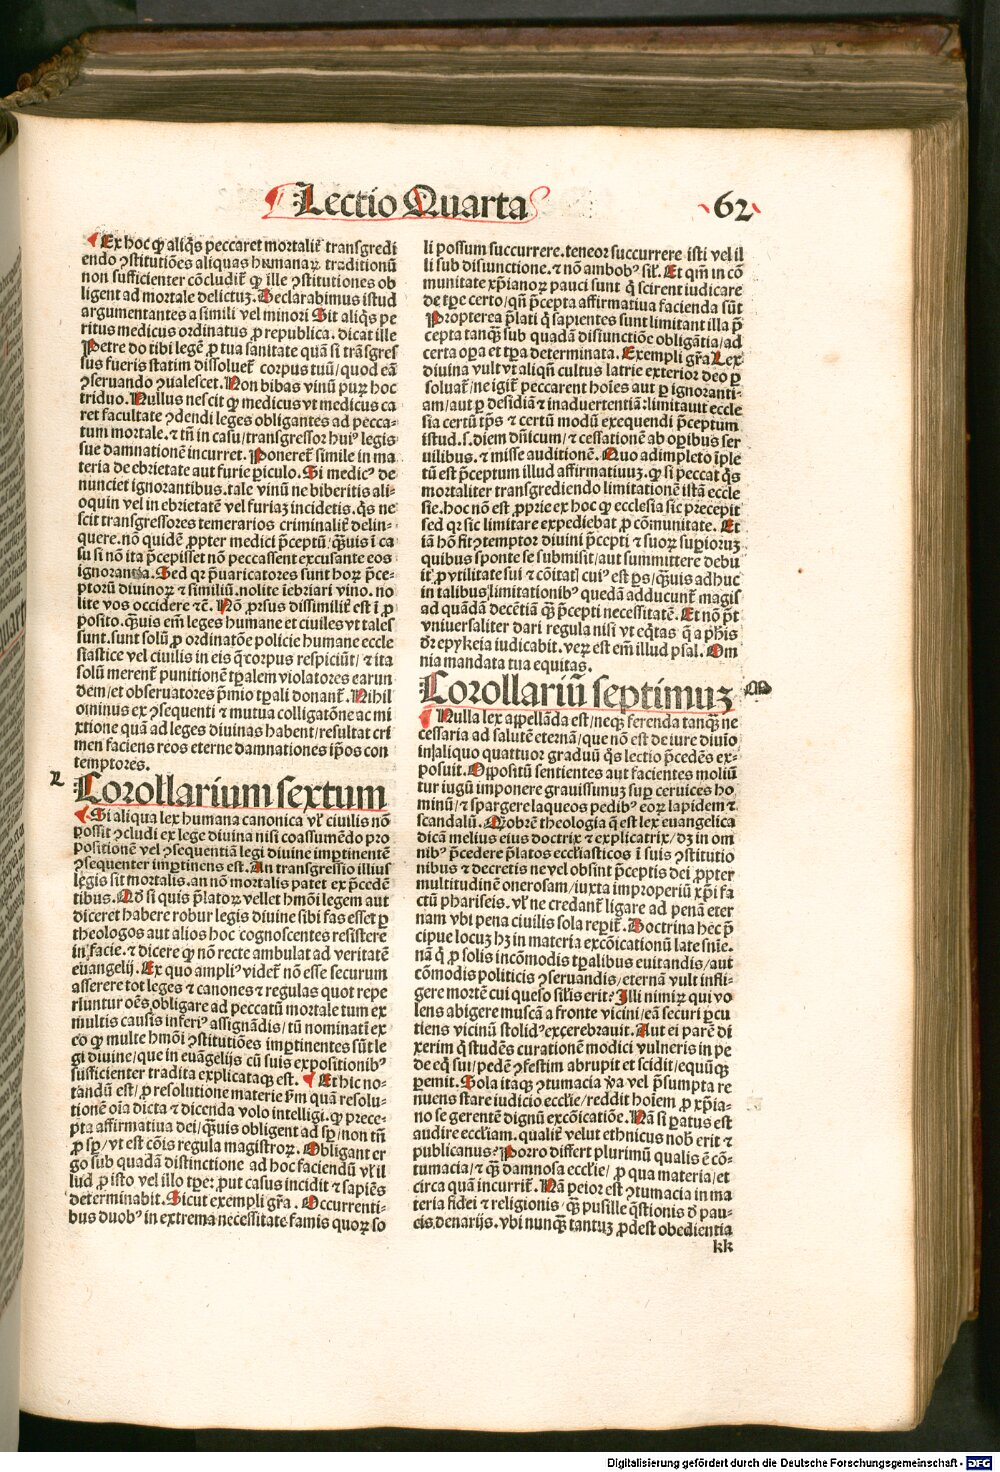 Lectio Quarta
62
Ex hoc ꝙ aliq̃s peccaret mortalit̃ transgredi
endo ꝯstitutiões aliquas humanaꝝ traditionũ
non sufficienter cõcludit̃ ꝙ ille ꝯstitutiones ob
ligent ad mortale delictuꝫ. Declarabimus istud
argumentantes a simili vel minori Sit aliq̃s pe
ritus medicus ordinatus ꝓ republica. dicat ille
Petre do tibi legẽ ꝓ tua sanitate quã si trãsgres
sus fueris statim dissoluet̃ corpus tuũ/ quod eã
ꝯseruando ꝯualescet. Non bibas vinũ puꝝ hoc
triduo. Nullus nescit ꝙ medicus vt medicus ca
ret facultate ꝯdendi leges obligantes ad pecca-
tum mortale. ⁊ tñ in casu/transgressor huiꝰ legis
sue damnationẽ incurret. Poneret̃ simile in ma
teria de ebrietate aut furie ꝑiculo. Si medicꝰ de
nunciet ignorantibus. tale vinũ ne biberitis ali-
oquin vel in ebrietatẽ vel furiaꝫ incidetis. q̃s ne
scit transgressores temerarios criminalit̃ delin-
quere. non quidẽ ꝓpter medici p̃ceptũ/ q̃uis ĩ ca
su si nõ ita p̃cepisset nõ peccassent excusante eos
ignorantia. Sed qꝛ p̃uaricatores sunt hoꝝ p̃ce-
ptorũ diuinoꝝ ⁊ similiũ. nolite iebriari vino. no
lite vos occidere ⁊c̃. Nõ ꝓrsus dissimilit̃ est ĩ ꝓ
posito. q̃uis em̃ leges humane et ciuiles vt tales
sunt. sunt solũ ꝓ ordinatõe policie humane eccle
siastice vel ciuilis in eis q̃ corpus respiciũt/ ⁊ ita
solũ merent̃ punitionẽ tp̃alem violatores earun
dem/ et obseruatores p̃mio tp̃ali donant̃. Nihil
ominus ex ꝯsequenti ⁊ mutua colligatõne ac mi
xtione quã ad leges diuinas habent/ resultat cri
men faciens reos eterne damnationes ip̃os con
temptores.
L
Corollarium sextum
Si aliqua lex humana canonica vl̃ ciuilis nõ
possit ꝯcludi ex lege diuina nisi coassumẽdo pro
positionẽ vel ꝯsequentiã legi diuine imꝑtinentẽ
ꝯsequenter imꝑtinens est. An transgressio illius
legis sit mortalis. an nõ mortalis patet ex p̃cedẽ
tibus. Qd̃ si quis p̃latoꝝ vellet hmõi legem aut
diceret habere robur legis diuine sibi fas esset ꝑ
theologos aut alios hoc cognoscentes resistere
in facie. ⁊ dicere ꝙ nõ recte ambulat ad veritatẽ
euangelij. Ex quo ampliꝰ videt̃ nõ esse securum
asserere tot leges ⁊ canones ⁊ regulas quot repe
riuntur oẽs obligare ad peccatũ mortale tum ex
multis causis inferiꝰ assignãdis/ tũ nominatĩ ex
eo ꝙ multe hmõi ꝯstitutiões imꝑtinentes sũt le
gi diuine/ que in euãgelijs cũ suis expositionibꝰ
sufficienter tradita explicataqꝫ est. Et hic no-
tandũ est/ ꝓ resolutione materie p̃m quã resolu-
tionẽ oĩa dicta ⁊ dicenda volo intelligi. ꝙ prece-
pta affirmatiua dei/ q̃uis obligent ad sp̃/ non tñ
ꝓ sp̃/ vt est cõis regula magistroꝝ. Obligant er
go sub quadã distinctione ad hoc faciendũ vl̃ il
lud ꝓ isto vel illo tp̃e: ꝓut casus incidit ⁊ sapiẽs
determinabit. Sicut exempli gr̃a. Occurrenti-
bus duobꝰ in extrema necessitate famis quoꝝ so
li possum succurrere. teneor succurrere isti vel il
li sub disiunctione. ⁊ nõ ambobꝰ sil̃. Et qm̃ in cõ
munitate xp̃ianoꝝ pauci sunt q̃ scirent iudicare
de tp̃e certo/ qñ p̃cepta affirmatiua facienda sũt
Propterea p̃lati q̃ sapientes sunt limitant illa p̃
cepta tanqꝫ sub quadã disiunctiõe obligãtia/ ad
certa oꝑa et tp̃a determinata. Exempli gr̃a Lex
diuina vult vt aliqñ cultus latrie exterior deo ꝑ
soluat̃/ ne igit̃ peccarent hoĩes aut ꝑ ignoranti-
am/ aut ꝑ desidiã ⁊ inaduertentiã: limitauit eccle
sia certũ tp̃s ⁊ certũ modũ exequendi p̃ceptum
istud. s. diem dñicum/ ⁊ cessationẽ ab oꝑibus ser
uilibus. ⁊ misse auditionẽ. Quo adimpleto ĩple
tũ est p̃ceptum illud affirmatiuuꝫ. ꝙ si peccat q̃s
mortaliter transgrediendo limitationẽ istã eccle
sie. hoc nõ est ꝓprie ex hoc ꝙ ecclesia sic precepit
sed qꝛ sic limitare expediebat ꝓ cõmunitate. Et
iã hõ fit ꝯtemptor diuini p̃cepti ⁊ suoꝝ suꝑioruꝫ
quibus sponte se submisit/ aut summittere debu
it ꝓ vtilitate sui ⁊ cõitatꝭ cuiꝰ est ꝑs/ q̃uis adhuc
in talibus limitationibꝰ quedã adducunt̃ magis
ad quãdã decẽtiã qꝫ p̃cepti necessitatẽ. Et nõ p̃t
vniuersaliter dari regula nisi vt eq̃tas q̃ a ph̃is
dr̃ epykeia iudicabit. veꝝ est em̃ illud psal. Om
nia mandata tua equitas.
Corollariũ septimuꝫ
M
Nulla lex appellãda est/ neqꝫ ferenda tanqꝫ ne
cessaria ad salutẽ eternã/ que nõ est de iure diuĩo
in aliquo quattuor graduũ q̃s lectio p̃cedẽs ex-
posuit. Oppositũ sentientes aut facientes moliũ
tur iugũ imponere grauissimuꝫ suꝑ ceruices ho
minũ/ ⁊ spargere laqueos pedibꝰ eoꝝ lapidem ⁊
scandalũ. Quobrẽ theologia q̃ est lex euangelica
dicã melius eius doctrix ⁊ explicatrix/ dꝫ in om
nibꝰ p̃cedere p̃latos eccl̃iasticos ĩ suis ꝯstitutio
nibus ⁊ decretis ne vel obsint p̃ceptis dei ꝓpter
multitudinẽ onerosam/ iuxta improperiũ xp̃i fa
ctũ phariseis. vl̃ ne credant̃ ligare ad penã eter
nam vbi pena ciuilis sola reperit̃. Doctrina hec p̃
cipue locuꝫ hꝫ in materia excõicationũ late sñie.
nã q̃ ꝓ solis incõmodis tp̃alibus euitandis/ aut
cõmodis politicis ꝯseruandis/ eternã vult infli-
gere mortẽ cui queso sil̃is erit? Illi nimiꝝ qui vo
lens abigere muscã a fronte vicini/ eã securi ꝑcu
tiens vicinũ stolidꝰ excerebrauit. Aut ei parẽ di
xerim q̃ studẽs curationẽ modici vulneris in pe
de eq̃ sui/ pedẽ ꝯfestim abrupit et scidit/ equũqꝫ
ꝑemit. Sola itaqꝫ ꝯtumacia ꝟa vel p̃sumpta re
nuens stare iudicio eccl̃ie/ reddit hoĩem ꝓ xp̃ia-
no se gerentẽ dignũ excõicatiõe. Nã si ꝑatus est
audire eccl̃iam. qualit̃ velut ethnicus nob̃ erit ⁊
publicanus? Porro differt plurimũ qualis ẽ cõ-
tumacia/ ⁊ qꝫ damnosa eccl̃ie/ ꝓ qua materia/ et
circa quã incurrit̃. Nã peior est ꝯtumacia in ma
teria fidei ⁊ religionis/ qꝫ pusille q̃stionis ð pau-
cis denarijs. vbi nunqꝫ tantuꝫ ꝓdest obedientia
kk
Digitalisierung gefördert durch die Deutsche Forschungsgemeinschaft - DFG